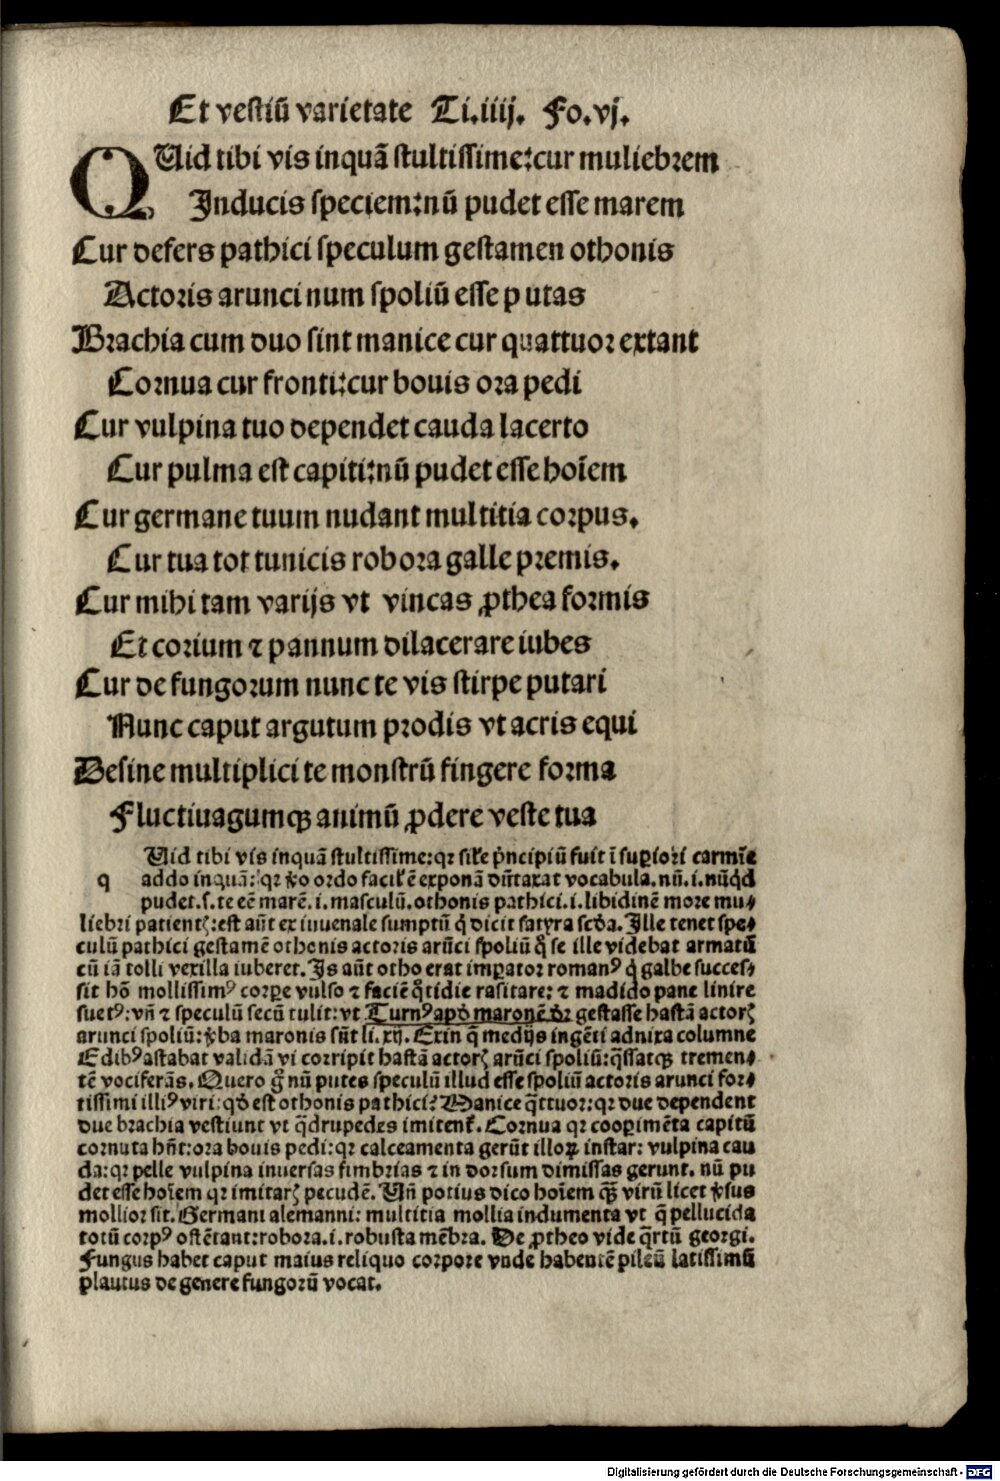 Et vestiū varietate Ti.iiij. Fo.vj.
QUid tibi vis inquā stultissime:cur muliebrem
Inducis speciem:nū pudet esse marem
Cur defers pathici speculum gestamen othonis
Actoris arunci num spoliū esse p utas
Brachia cum duo sint manice cur quattuor extant
Cornua cur fronti:cur bouis ora pedi
Cur vulpina tuo dependet cauda lacerto
Cur pulma est capiti:nū pudet esse hoīem
Cur germane tuum nudant multitia corpus.
Cur tua tot tunicis robora galle premis.
Cur mihi tam varijs vt vincas ꝓthea formis
Et corium ⁊ pannum dilacerare iubes
Cur de fungorum nunc te vis stirpe putari
Nunc caput argutum prodis vt acris equi
Desine multiplici te monstrū fingere forma
Fluctiuagumqꝫ animū ꝓdere veste tua
Uid tibi vis inquā stultissime:qr sil'e pͥncipiū fuit ī suꝑiori carmīe
q addo inquā:qr v̾o ordo facil' ē exponā dūtaxat vocabula.nū.i.nūqͥd
pudet.s.te eē marē.i.masculū.othonis pathici.i.libidinē more mu⸗
liebri patientꝭ:est aūt ex iuuenale sumptū qͥ dicit satyra scd̓a.Ille tenet spe⸗
culū pathici gestamē othonis actoris arūci spoliū qͦ se ille videbat armatū
cū iā tolli vexilla iuberet.Is aūt otho erat imꝑator romanꝰ qͥ galbe succes⸗
sit hō mollissimꝰ corꝑe vulso ⁊ faciē qͦtidie rasitare: ⁊ madido pane linire
suetꝰ:vñ ⁊ speculū secū tulit:vt Turnꝰ apd̓ maronē dr̄ gestasse hastā actorꝭ
arunci spoliū:v̾ba maronis sūt li.xij. Exin q̄ medijs ingēti adnixa columne
Edibꝰ astabat validā vi corripit hastā actorꝭ arūci spoliū:qͣssatqꝫ tremen⸗
tē vociferās. Quero gͦ nū putes speculū illud esse spoliū actoris arunci for⸗
tissimi illiꝰ viri:qd̓ est othonis pathici? Manice qͣttuor:qr due dependent
due brachia vestiunt vt qͣdrupedes imitentʳ. Cornua qr cooꝑimēta capitū
cornuta hn̄t:ora bouis pedi:qr calceamenta gerūt illoꝝ instar: vulpina cau
da:qr pelle vulpina inuersas fimbrias ⁊ in dorsum dimissas gerunt. nū pu
det esse hoīem qr imitarꝭ pecudē. Uñ potius dico hoīem qͣꝫ virū licet v̾sus
mollior sit. Germani alemanni: multitia mollia indumenta vt q̄ pellucida
totū corpꝰ ostētant:robora.i.robusta mēbra. De ꝓtheo vide qͣrtū georgi.
Fungus habet caput maius reliquo corpore vnde habentē pileū latissimū
plautus de genere fungorū vocat.
Digitalisierung gefördert durch die Deutsche Forschungsgemeinschaft - DFG